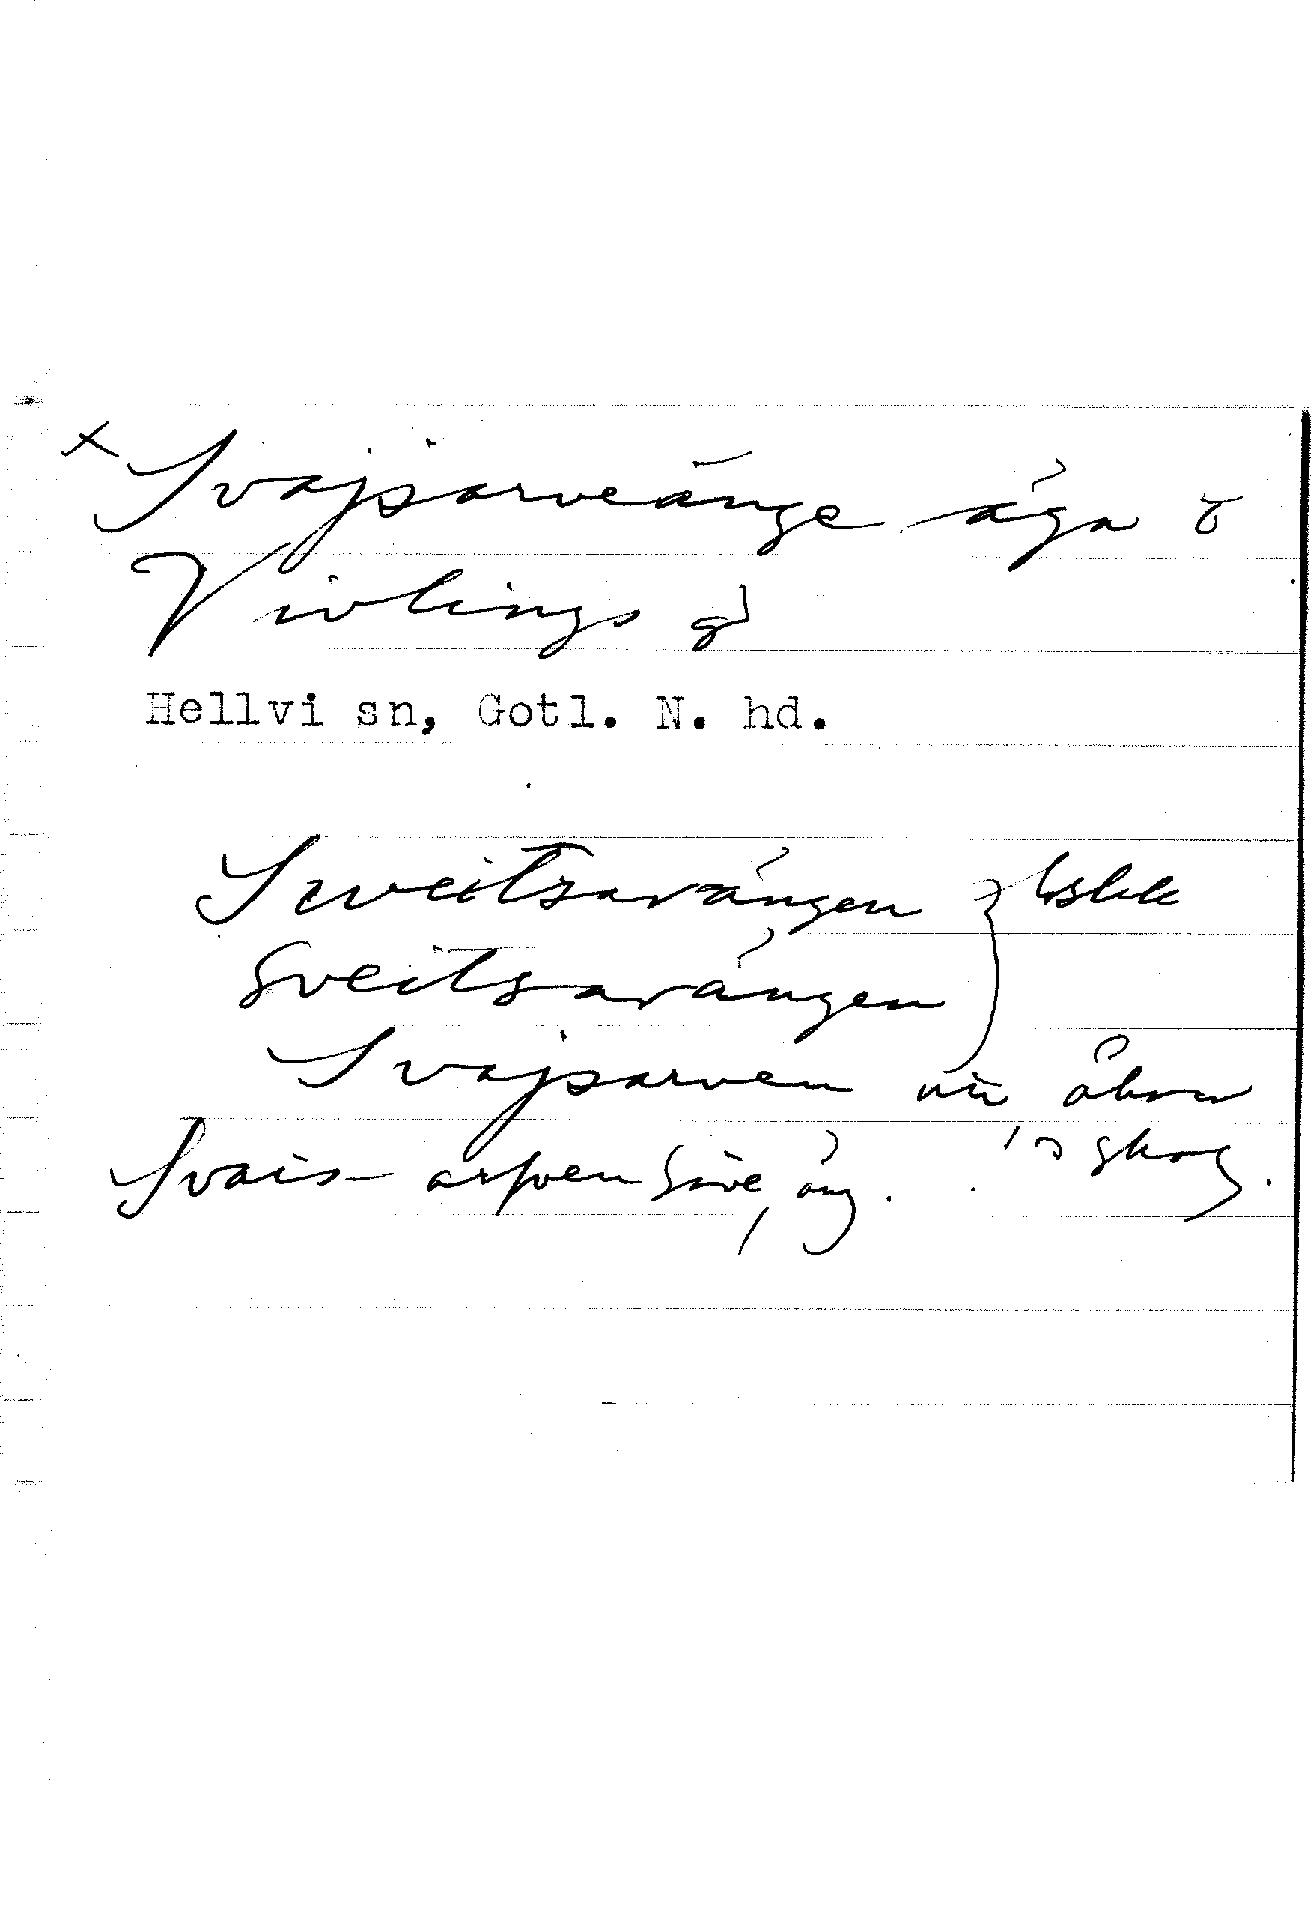 x Svajsarveänge äga t
Vivlings gd
Hellvi sn, Gotl. N. hd.
Sweitsarängen
Sveitsarängen
Svajsarven nu åker
Svais-arfven Säve, äng. o skog.